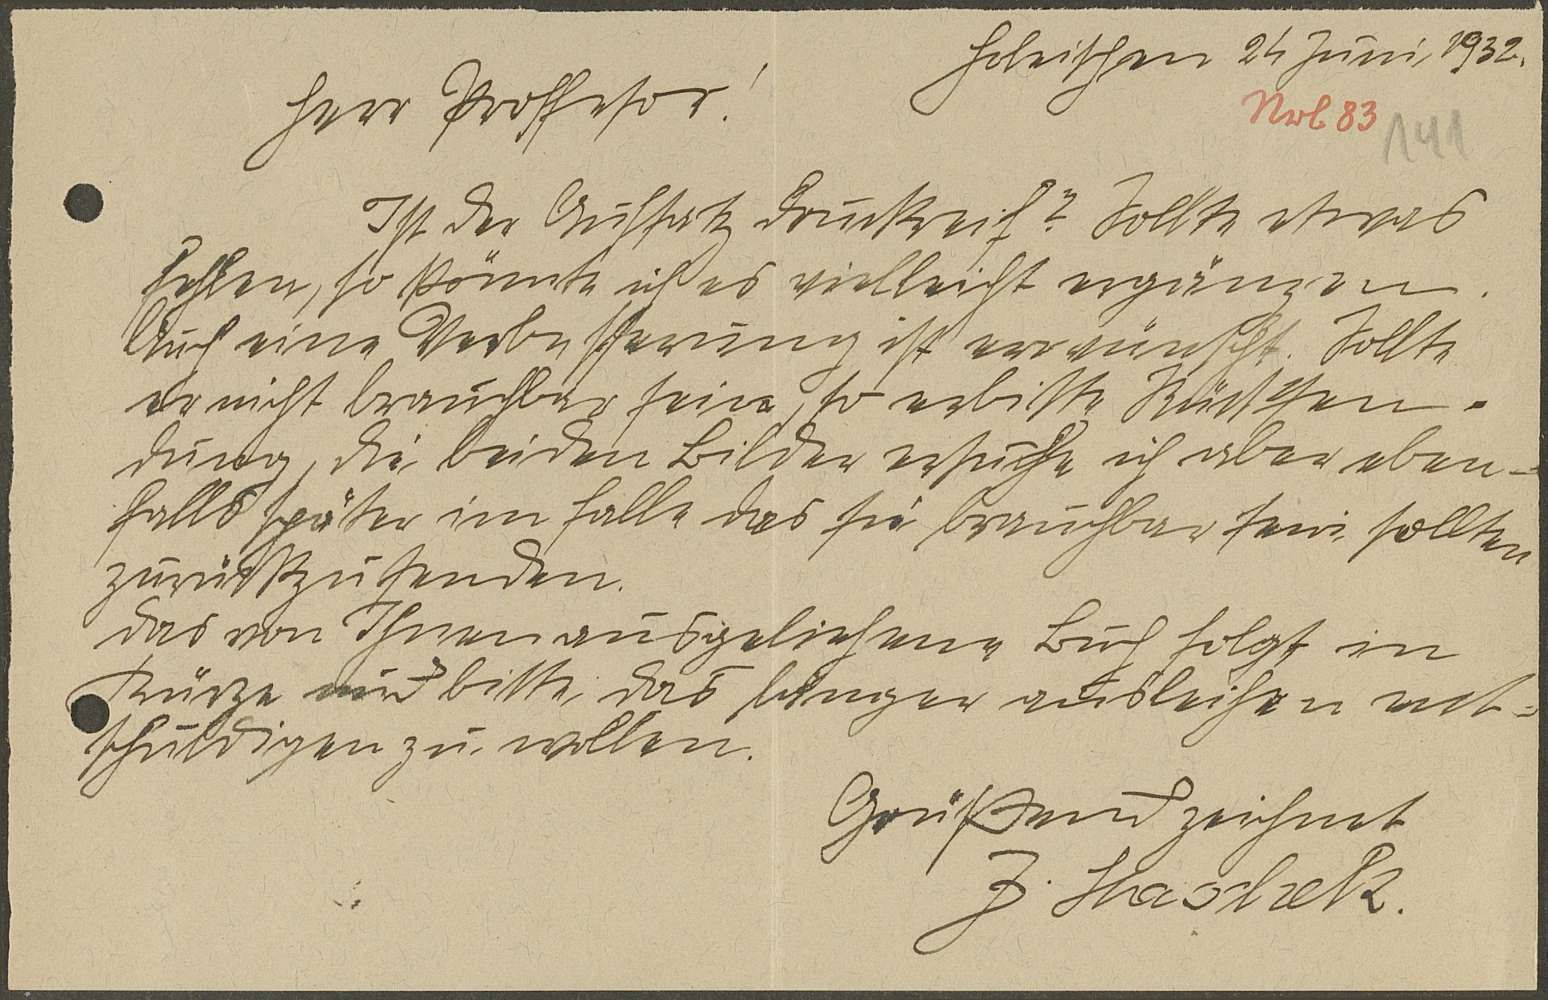 Holeischen 24 Juni, 1932.
Herr Proffesor!
Nrb 83
141
Ist der Aufsatz druckreif? Sollte etwas
fehlen, so könnte ich es vielleicht ergänzen.
Auch eine Verbesserung ist erwünscht. Sollte
er nicht brauchbar sein, so erbitte Rücksen-
dung, die beiden Bilder ersuche ich aber eben-
falls später im falle das sie brauchbar sein sollten
zurückzusenden.
Das von Ihnen ausgeliehene Buch folgt in
Kürze und bitte das länger ausleihen ent-
schuldigen zu wollen.
Grüßend zeichnet
J. Haschek.